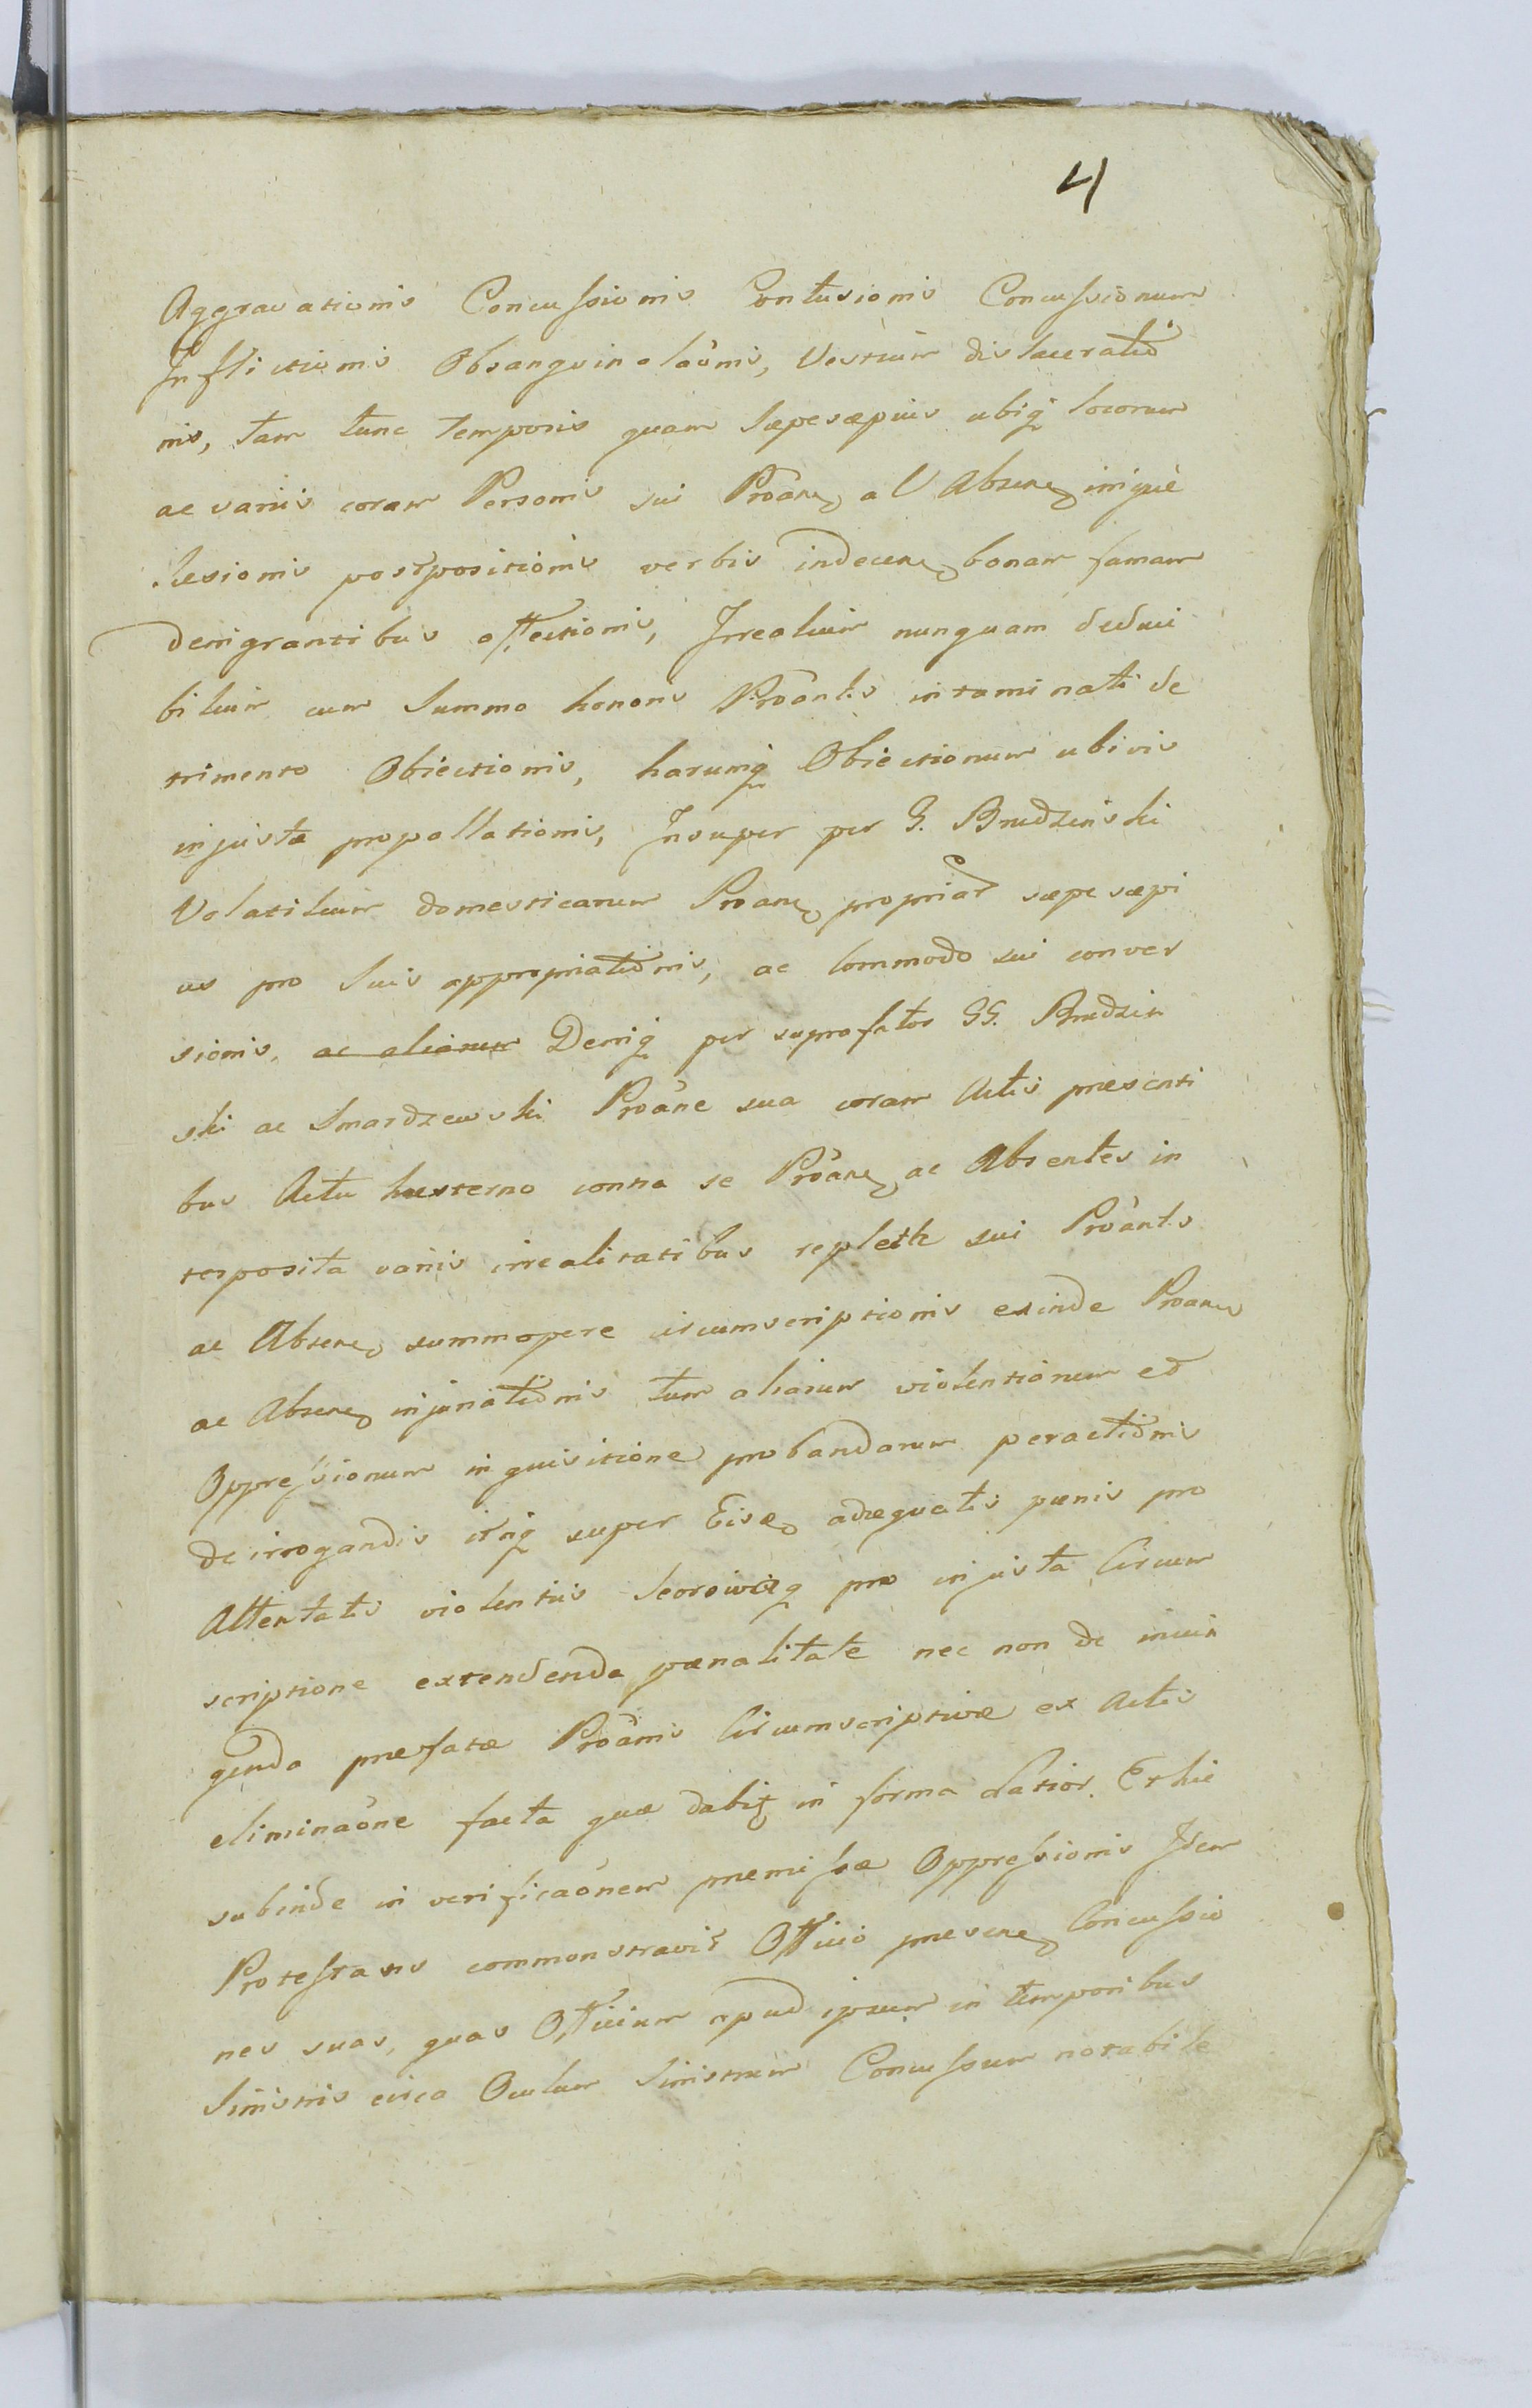 4
Aggravationis Concussionis Contusionis Concussionum
Inflictionis Obsanguinolaõnis, Vestium dislaceratio
nis, tam tunc temporis quam sæpesæpius ubiq locorum
ac variis coram Personis sui Proãne a V Absene iniquè
læsionis postpositionis verbis indecene bonam famam
denigrantibus affectionis, Irrealium nunquam deduci
bilium cum summo honoris Proãntis intaminati de
trimento Obiectionis, harumq Obiectionum ubivis
injustæ propallationis, Insuper per G. Brudzinski
Volatilium domesticarum Proane propriar sæpe sæpi
us pro suis appropriationis, ac commodo sui conver
sionis, ac aliarum Deniq per suprafatos GG. Brudzin
ski ac Smardzewski Proãne sua coram Actis præsenti
bus Actu hesterno contra se Proãne ac Absentes in
terposita variis irrealitatibus repleta sui Proãntis
ac Absene summopere circumscriptionis exinde Proane
ac Absene injuriationis tum aliarum violentionum et
Oppressionum inquisitione probandarum peractionis
de irrogandis itaq super Eisd adæquatis pænis pro
Attentatis violentiis seorsiviq pro injusta Circum
scriptione extendenda pænalitate nec non de iniun
genda præfatæ Proãnis Circumscriptivæ ex Actis
eliminaõne facta quæ dabit in forma latior. Et hic
subinde in verificaõnem præmissæ Oppressionis Idem
Protestans commonstravit Officio præsene Concussio
nes suas, quas Officium apud ipsum in temporibus
sinistris circa Oculum sinistrum Concussum notabile